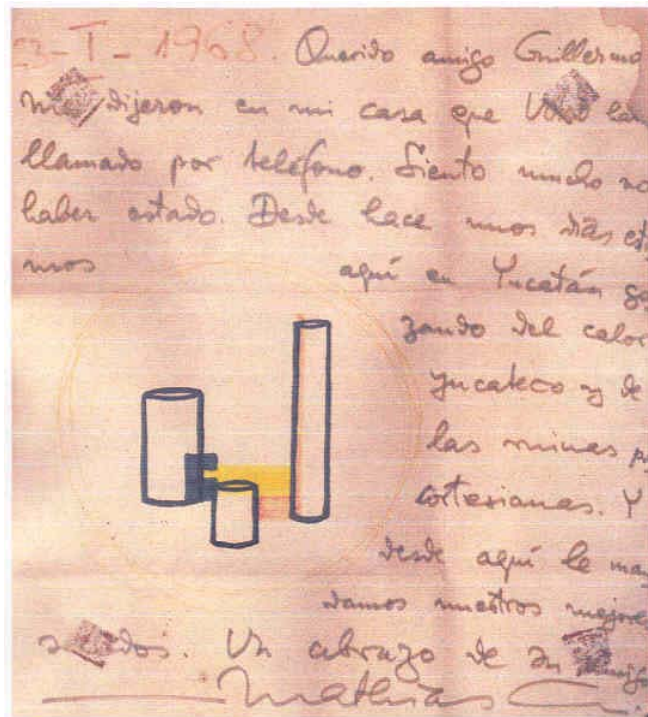 23-I-1968. Querido amigo Guillermo
me dijeron en mi casa que Usted
llamado por teléfono. Siento mucho no
haber estado. Desde hace unos días est
mos aquí en Yucatán go
zando del calor
yucateco y de
las ruinas p
cortesianas. Y
desde aquí le man
damos nuestros mejores
Un abrazo de su amigo
Mathias